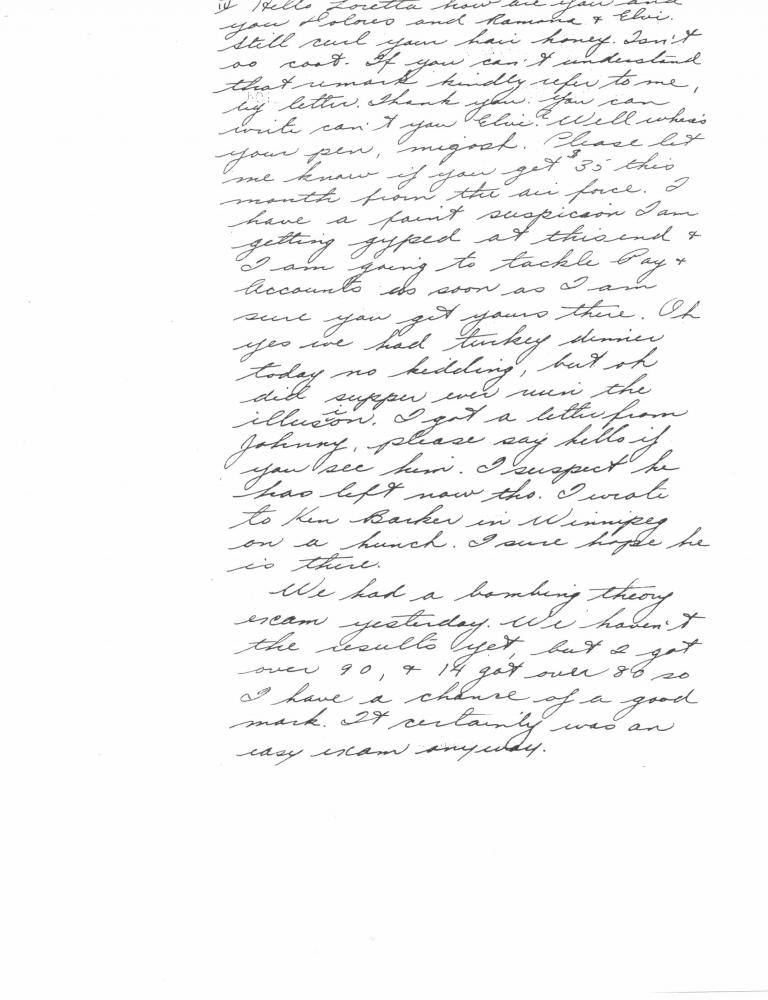 Hello Loretta how are you and
you Dolores and Ramona & Elvi.
Still curl your hair honey. Isn't
so coot. If you can't understand
that remark kindly refer to me,
by letter. Thank you. You can
write can't you Elvie? Well where's
your pen, migosh. Please let
me know if you get $35 this
month from the air force. I
have a faint suspicion I am
getting gyped at this end &
I am going to tackle Pay &
Accounts as soon as I am
sure you get yours there. Oh
yes we had turkey dinner
today no kidding, but oh
did supper ever ruin the
illusion. I got a letter from
Johnny, please say hello if
you see him. I suspect he
has left now tho. I wrote
to Ken Barker in Winnipeg
on a hunch. I sure hope he
is there.
We had a bombing theory
exam yesterday. We haven't
the results yet, but 2 got
over 90, & 14 got over 80 so
I have a chance of a good
mark. It certainly was an
easy exam anyway.